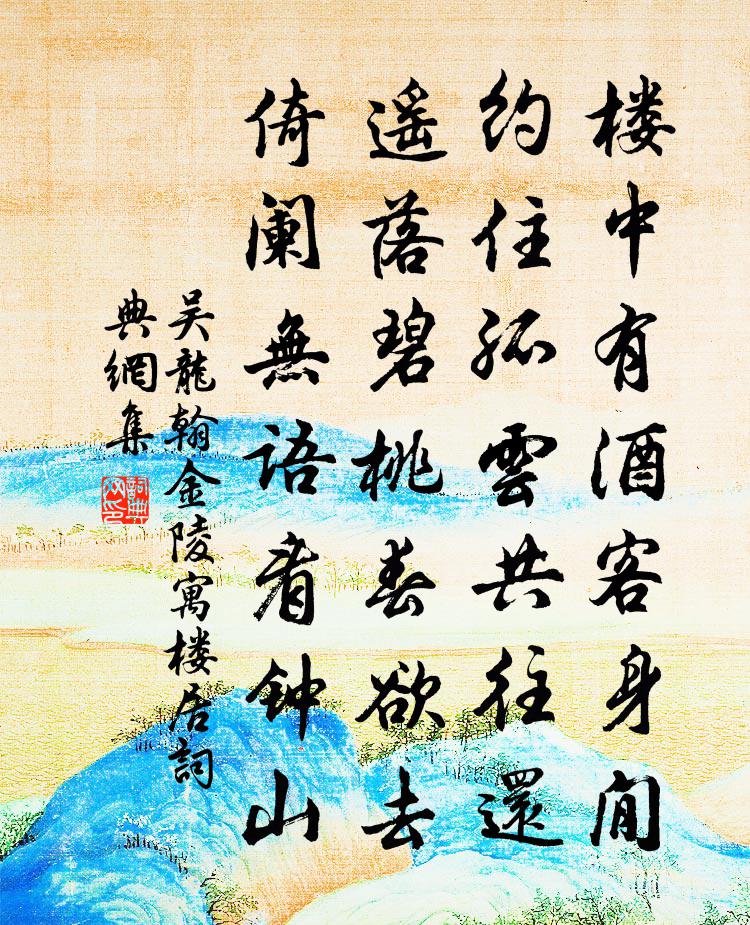 楼中有酒客身閒
约住孤雲共往還
遥落碧桃春欲去
倚阑無語看钟山
吴龍翰金陵寓楼居詞
典網集
詞典